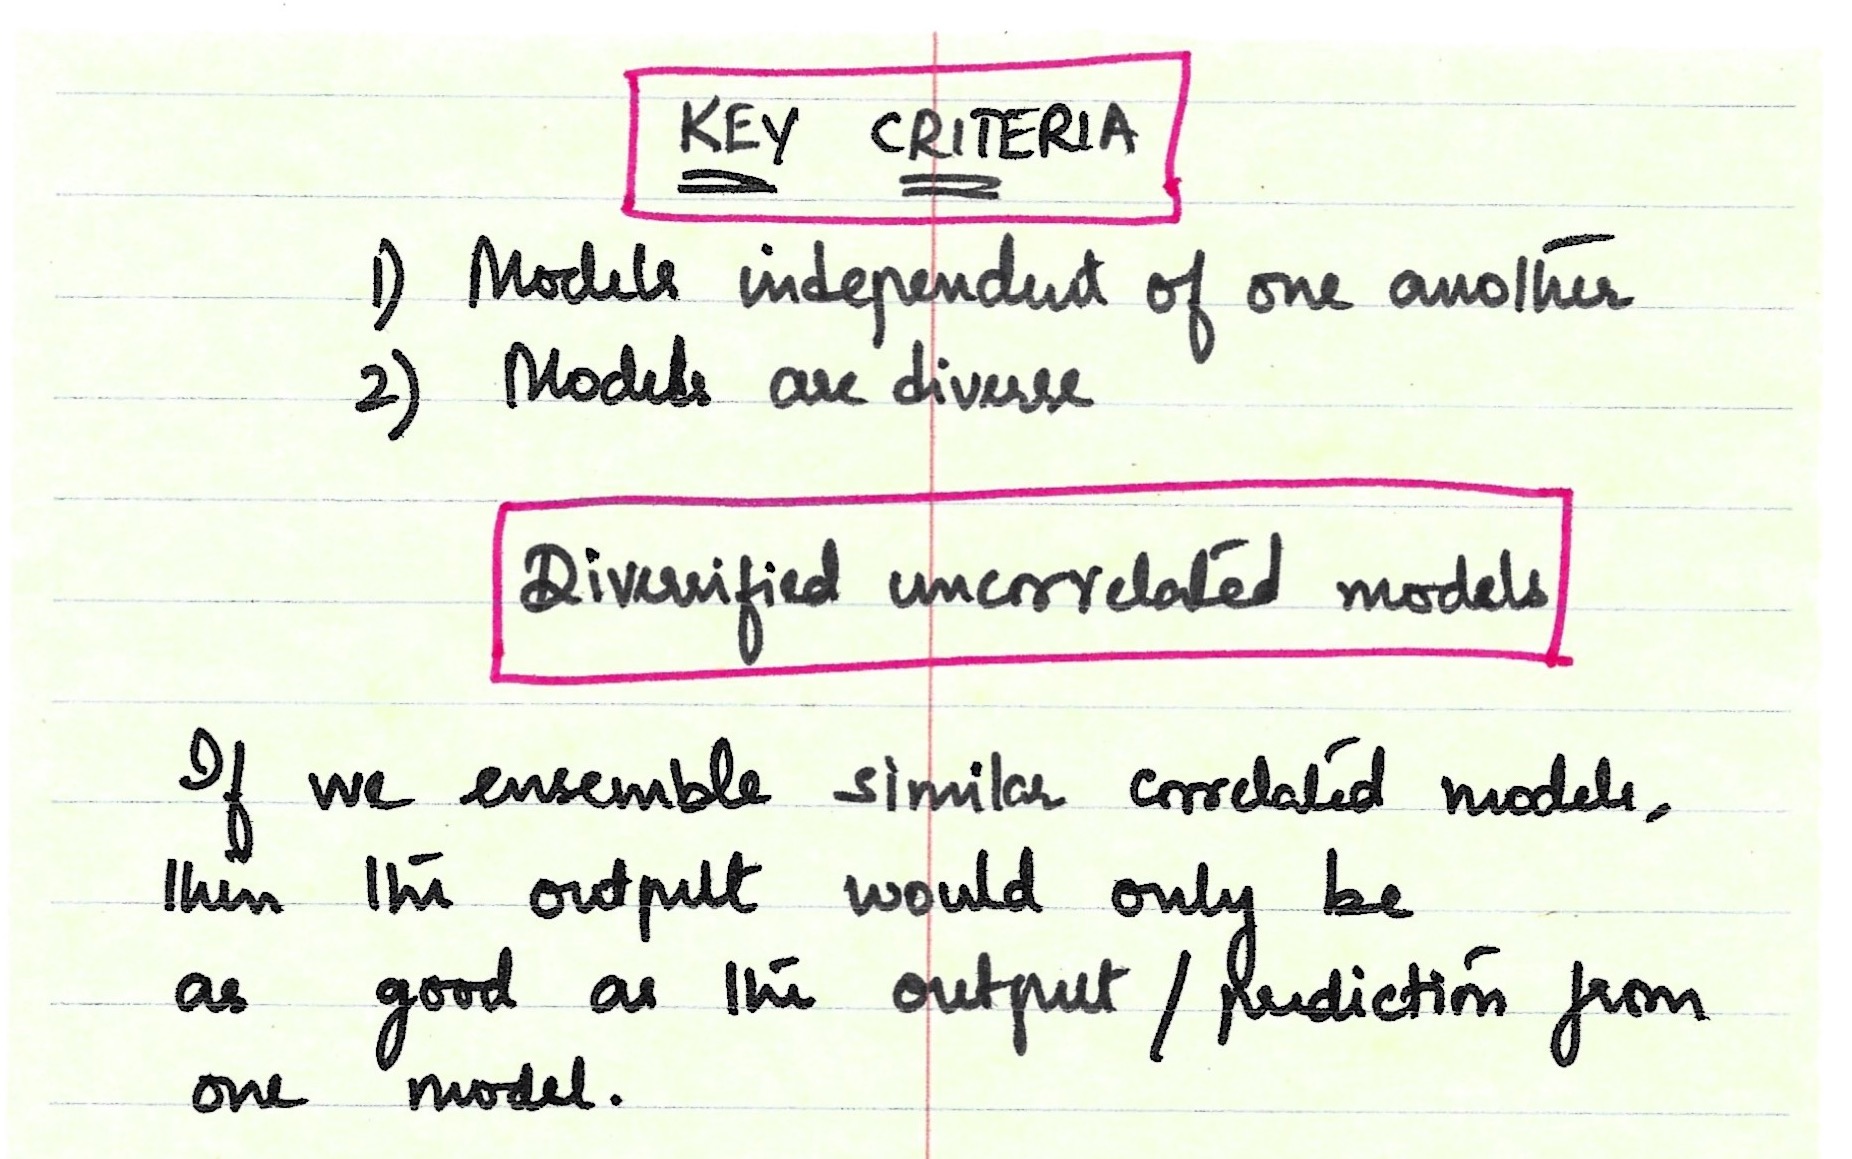 KEY CRITERIA
1) Models independent of one another
2) Models are diverse
Diversified uncorrelated models
If we ensemble similar correlated models,
then the output would only be
as good as the output / prediction from
one model.